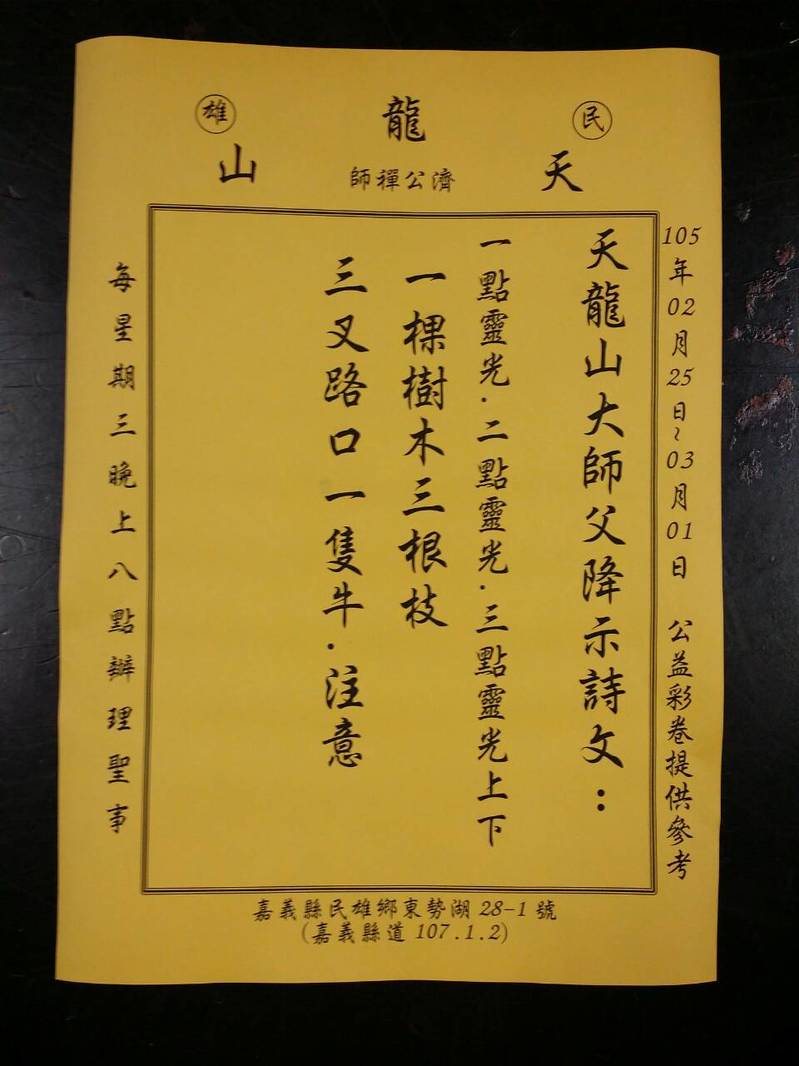 民雄
天龍山
濟公禪師
105年02月25日~03月01日 公益彩卷提供參考
天龍山大師父降示詩文:
一點靈光.二點靈光.三點靈光上下
一棵樹木三根枝
三叉路口一隻牛.注意
每星期三晚上八點辦理聖事
嘉義縣民雄鄉東勢湖28-1號
(嘉義縣道107.1.2)